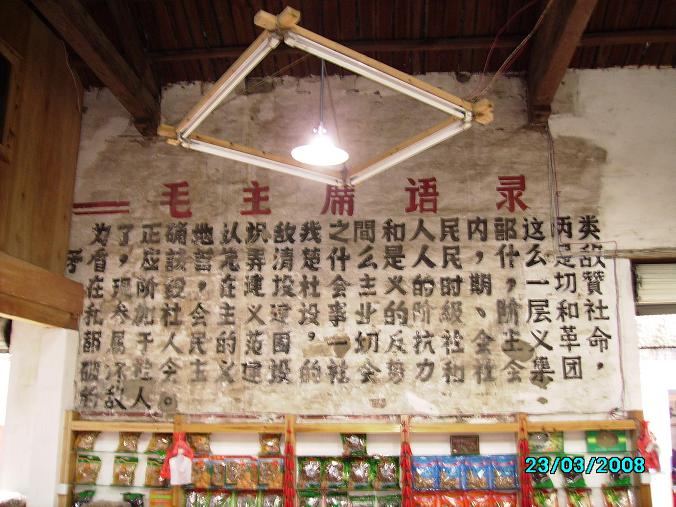 毛主席语录
为了正确地认识敌我之間和人民内部这两类
盾，应該首先弄清楚什么是人民，什么是敌
在现阶段，在建設社会主义的时期，一切赞
和参加社会主义建設事业的阶级、阶层和社
都属于人民的范围，一切反抗社会主义革命，
破坏社会主义建設的社会势力和社会集团，
的敌人。
23/03/2008